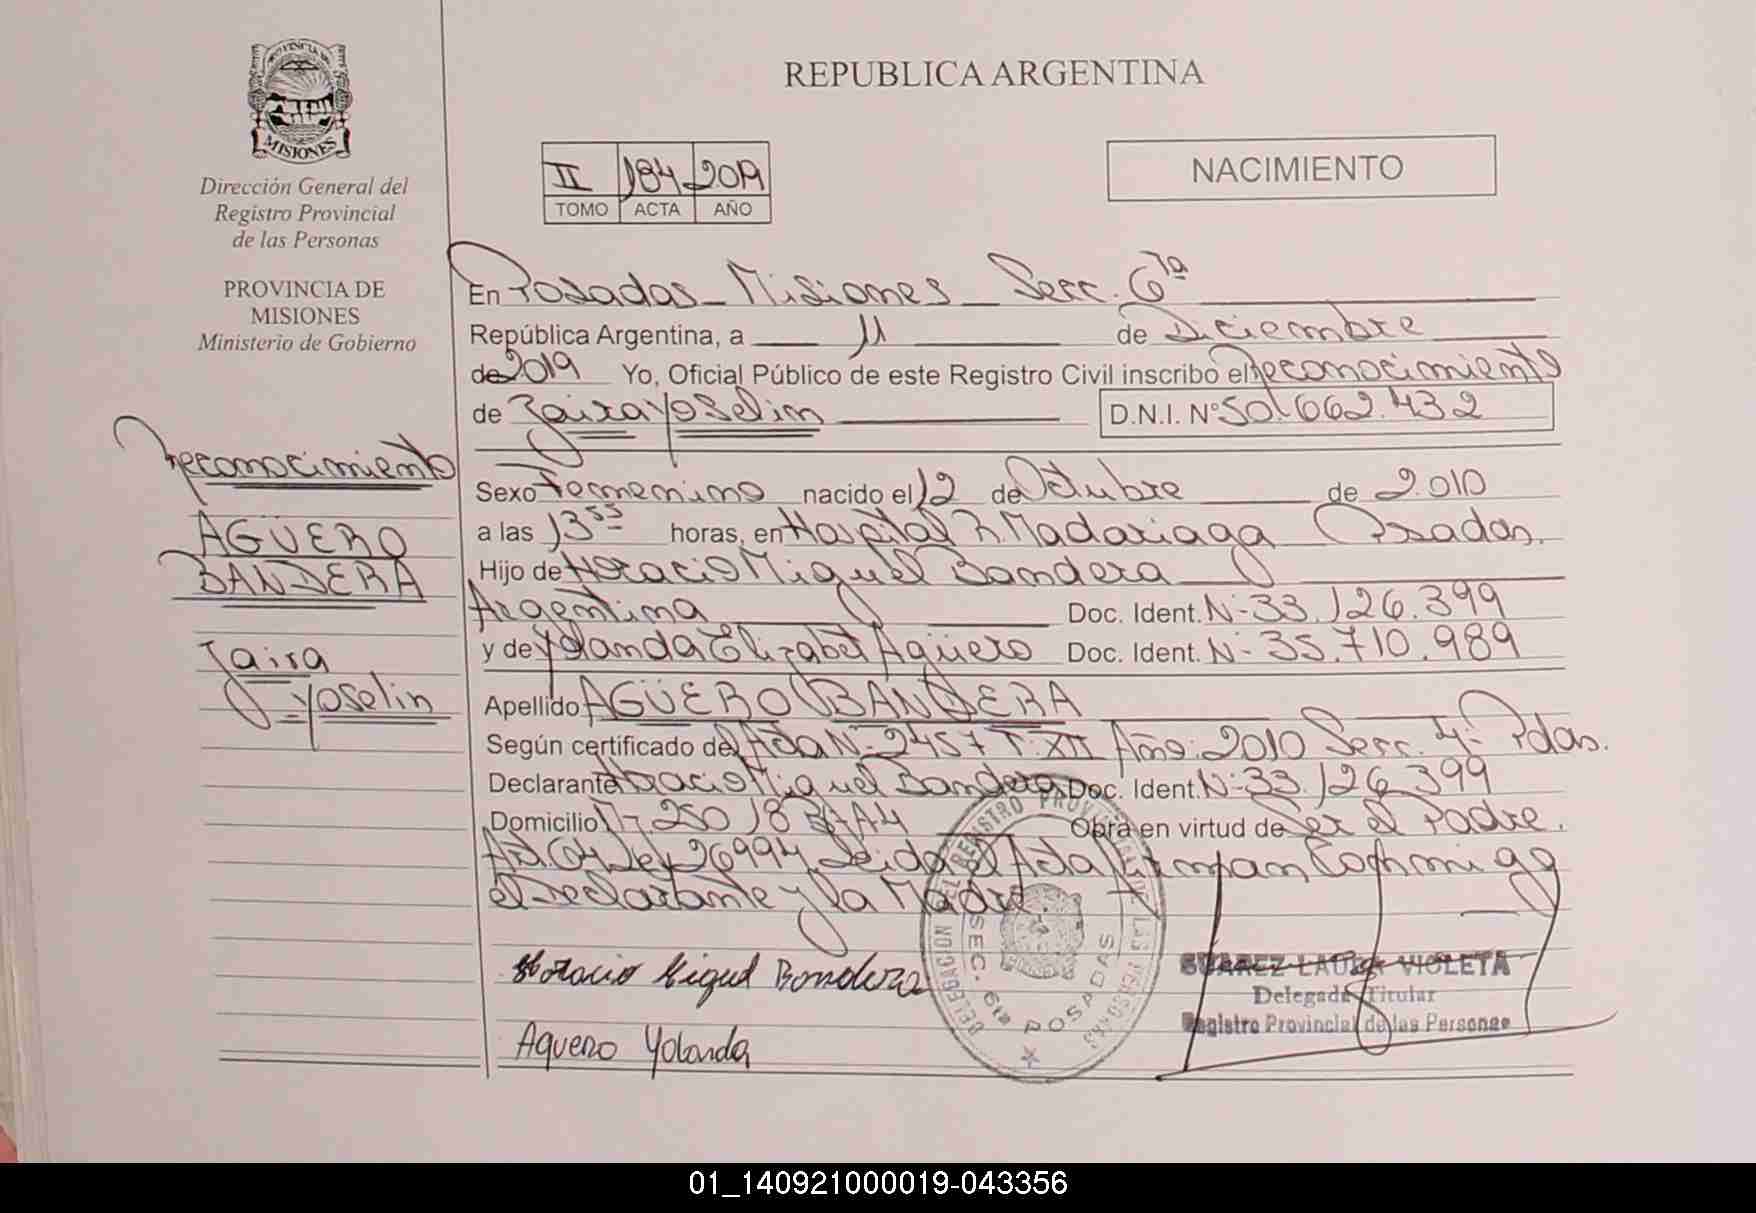 PROVINCIA DE
MISIONES
Dirección General del
Registro Provincial
de las Personas
PROVINCIA DE
MISIONES
Ministerio de Gobierno
Reconocimiento
AGÜERO
BANDERA
Zaira
Yoselin
REPUBLICA ARGENTINA
II 184 2019
TOMO ACTA AÑO
NACIMIENTO
En Posadas - Misiones - Secc. 6ta
República Argentina, a 11 de Diciembre
de 2019 Yo, Oficial Público de este Registro Civil inscribo el Reconocimiento
de Zaira Yoselin D.N.I. N° 50.662.432
Sexo Femenino nacido el 12 de Octubre de 2.010
a las 13 55 horas, en Hospital R. Madariaga Posadas.
Hijo de Horacio Miguel Bandera
Argentina Doc. Ident. N- 33.126.399
y de Yolanda Elizabet Agüero Doc. Ident. N- 35.710.989
Apellido AGÜERO BANDERA
Según certificado del Acta N- 2457 T: XII Año: 2010 Secc. 4- Pdas.
Declarante Horacio Miguel Bandera Doc. Ident. N- 33.126.399
Domicilio 250 18 A4 Obra en virtud de Ser el Padre.
Art. 64 Ley 26994 Leida el Acta Firman Conmigo
el Declarante y la Madre.
Horacio Miguel Bandera
Aguero Yolanda
DELEGACION DEL REGISTRO PROVINCIAL DE LAS PERSONAS
SEC. 6ta POSADAS
SUAREZ LAURA VIOLETA
Delegada Titular
Registro Provincial de las Personas
01_140921000019-043356